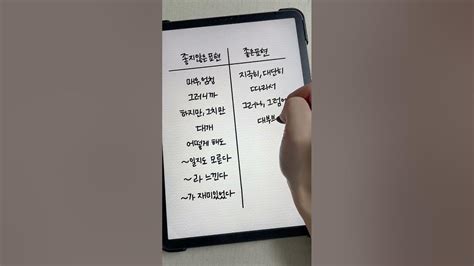 좋지않은표현
좋은표현
매우, 엄청
지극히, 대단히
그러니까
따라서
하지만, 그치만
그러나, 그럼에
대개
대부
어떻게 해도
~일지도 모른다
~라 느낀다
~가 재미있었다